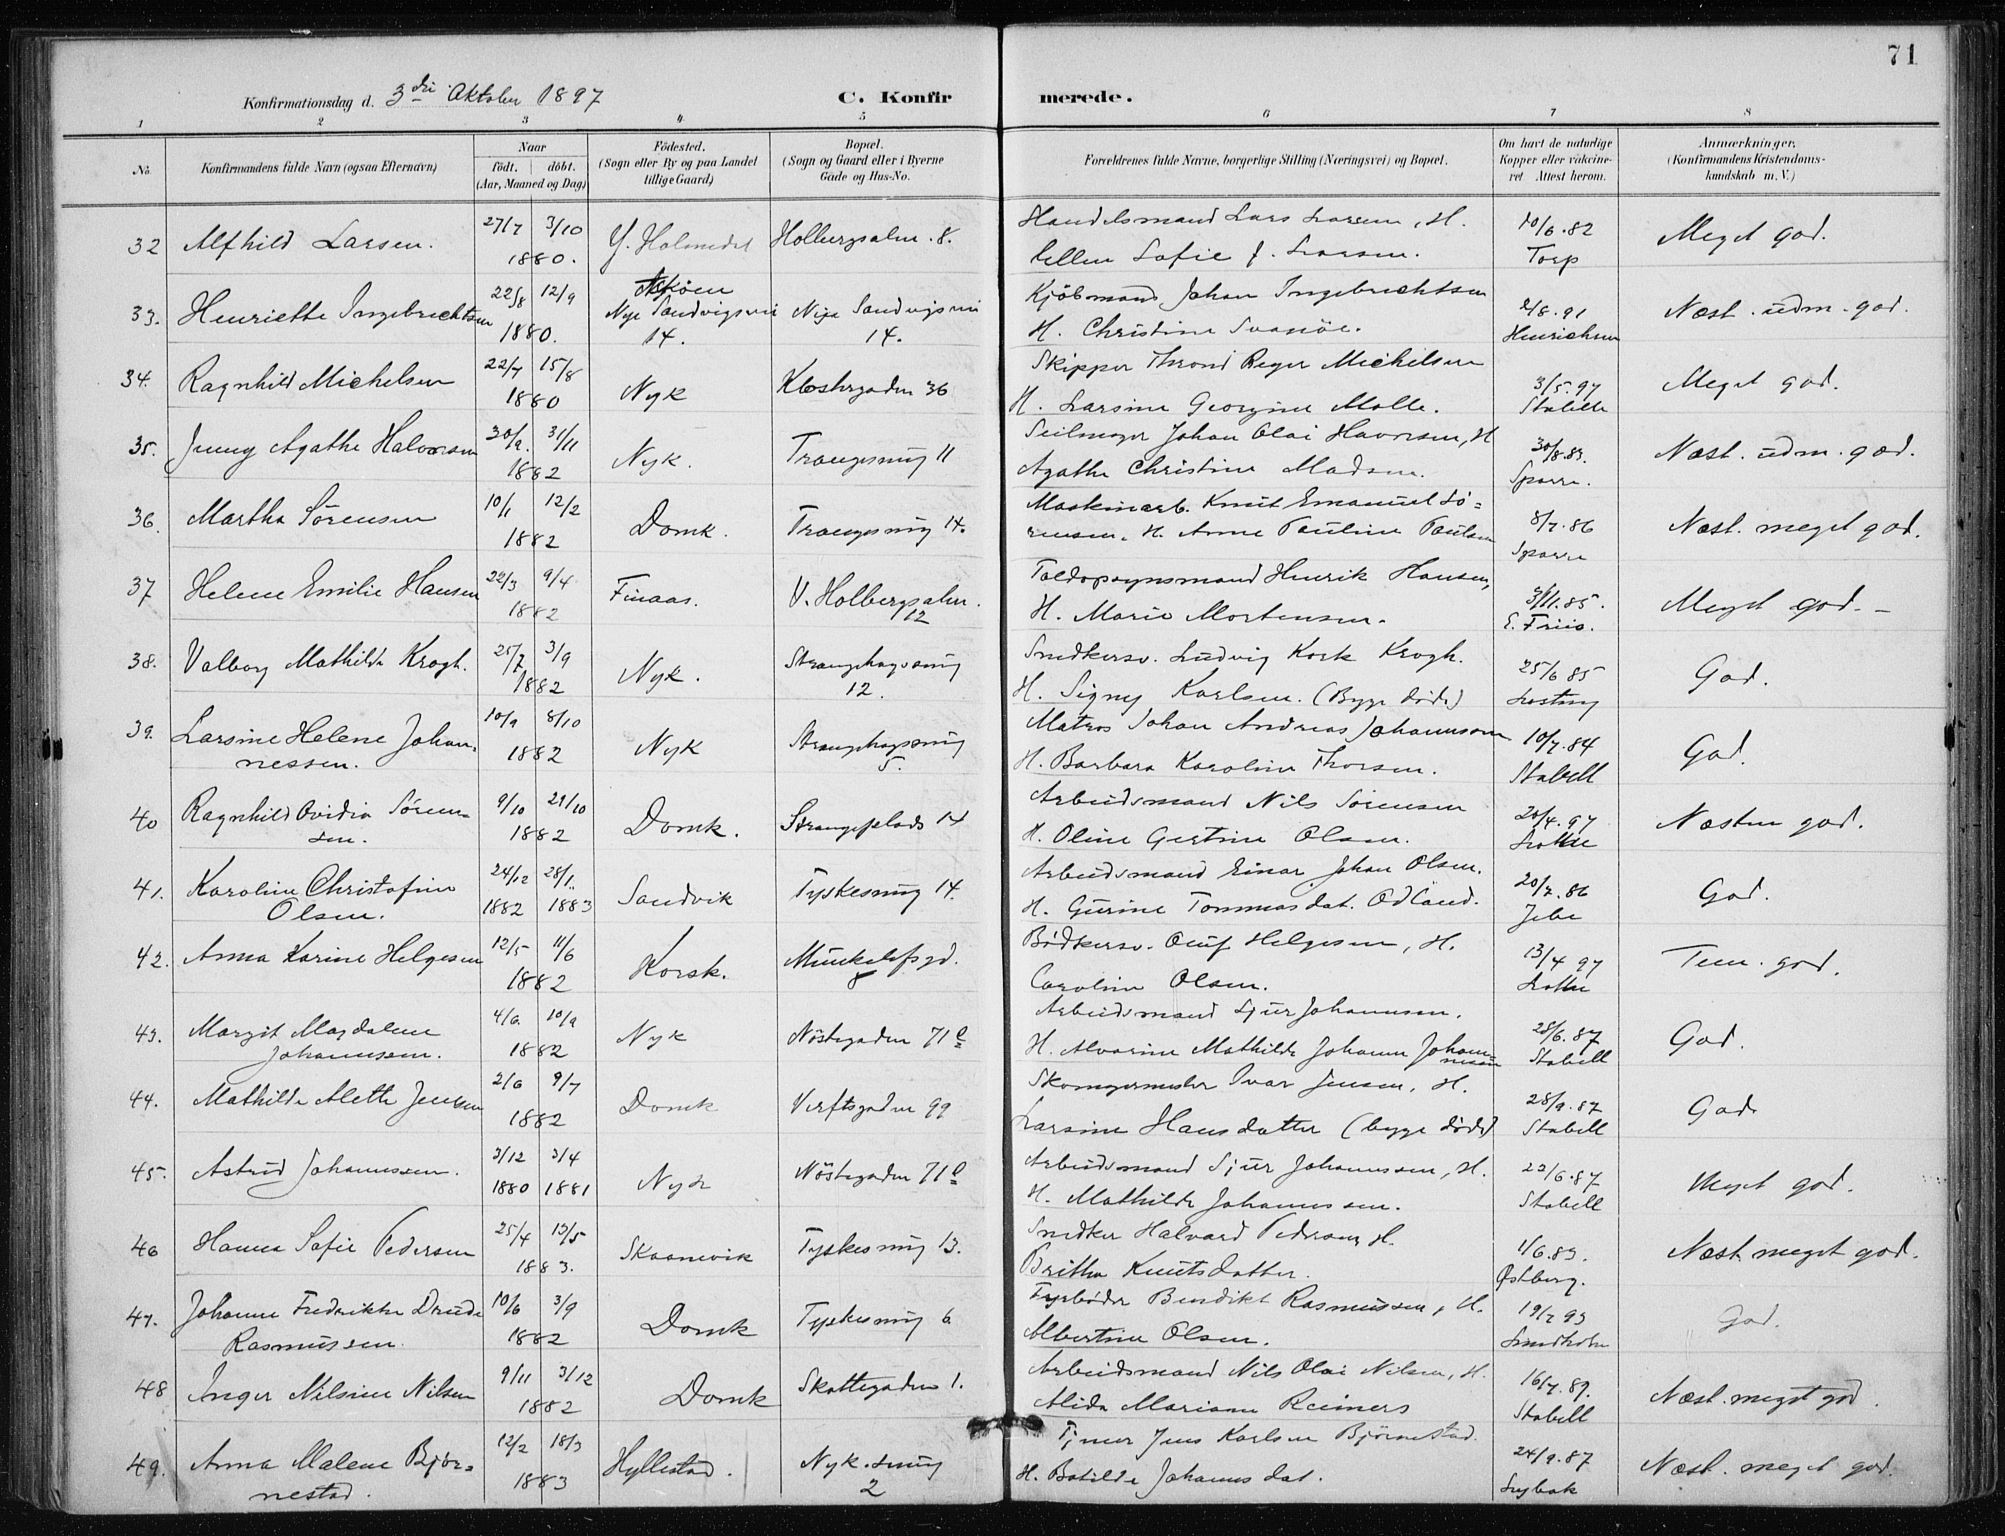 71
Konfirmationsdag d. 3die Oktober 1897 C. Konfirmerede.
1 2 3 4 5 6 7 8
No. Konfirmandens fulde Navn (ogsaa Efternavn) Naar født. døbt. (Aar, Maaned og Dag) Fødested. (Sogn eller By og paa Landet tillige Gaard) Bopæl. (Sogn og Gaard eller i Byerne Gade og Hus-No. Forældrenes fulde Navne, borgerlige Stilling (Næringsvei) og Bopæl. Om havt de naturlige Kopper eller vakcineret Attest herom. Anmærkninger. (Konfirmandens Kristendomskundskab m. V.)
32 Alfhild Larsen. 27/7 3/10 1880. Y. Holmedal Holbergsalm. 8. Handelsmand Lars Larsen, H. Ellen Sofie J. Larsen. 10/6.82 Torp Meget god.
33. Henriette Ingebrichtsen 22/8 12/9 1880. Askøen Nye Sandvigsvei 14. Nye Sandvigsvei 14. Kjøbmand Johan Ingebrichtsen H. Christine Svanøe. 2/8.91 Henrichsen Næst. udm. god.
34. Ragnhild Michelsen 22/7 15/8 1880 Nyk Klostergaden 36 Skipper Thrond Reger Michelsen H. Larsine Georgine Molle. 3/5.97 Stabell Meget god.
35. Jenny Agathe Halvorsen 30/9. 31/11 1882 Nyk. Trangesmug 11 Seilmager Johan Olai Havorsen, H Agathe Christine Madsen. 30/8.83. Sparre. Næst. udm. god.
36. Martha Sørensen 10/1 12/2 1882 Domk. Trangesmug 14. Maskinarb. Knut Emanuel Sørensen. H. Anne Pauline Paulsen 8/7.86 Sparre Næst. meget god.
37 Helene Emilie Hansen 22/3 9/4 1882 Finaas. V. Holbergsalm. 12 Toldopsynsmand Henrik Hansen, H. Marie Mortensen. 3/11.85. E. Friis. Meget god. -
38. Valborg Mathilde Krogh. 25/7 3/9 1882 Nyk. Strangehagesmug 12. Snedkersv. Ludvig Kork Krogh. H. Signy Karlsen. (Begge døde) 25/6 85 God.
39. Larsine Helene Johannessen. 10/9 8/10 1882 Nyk Strangehagesmug 5. Matros Johan Andreas Johannessen H. Barbara Karoline Thorsen. 10/7.84 Stabell God.
40 Ragnhild Ovidia Sørensen. 9/10 29/10 1882 Domk. Strangeplads 14 Arbeidsmand Nils Sørensen H. Oline Gertine Olsen. 20/4.97 Lothe Næsten god.
41. Karoline Christofine Olsen. 24/12 28/1. 1882 1883 Sandvik Tyskesmug 14. Arbeidsmand Einar Johan Olsen. H. Gurine Tommasdat. Odland. 20/7.86 Jebe God.
42. Anna Karine Helgesen 12/5 11/6 1882 Korsk. Munkelofsgd. 8 Bødkersv. Oluf Helgesen, H. Caroline Olsen. 13/4 97 Lothe Tem. god.
43. Margit Magdalene Johannssen. 4/6. 10/9 1882 Nyk Nøstegaden 71e Arbeidsmand Sjur Johannsen. H. Alvarine Mathilde Johanne Johannessen 28/6.87 Stabell God.
44. Mathilde Alette Jensen 2/6 9/7 1882 Domk Verftsgaden 99 Skomagermester Ivar Jensen, H. Larsine Hansdatter (begge døde) 28/9.87 Stabell God
45. Astrid Johannssen. 3/12 3/4 1880 1881 Nyk Nøstegaden 71e Arbeidsmand Sjur Johannssen, H. H. Mathilde Johannssen. 22/6.87 Stabell Meget god.
46 Hanna Sofie Pedersen 25/4 13/5 1883. Skaanevik Tyskesmug 13. Snedker Halvard Pedersen, H. Britha Knutsdatter. 1/6.83. Østberg. Næst. meget god.
47. Johanne Fredrikke Drude Rasmussen. 10/6 3/9 1882 Domk Tyskesmug 6 Fyrbøder Bendikt Rasmussen, H. Albertine Olsen. 19/7 93 Lindholm God.
48 Inger Nilsine Nilsen 9/11 3/12 1882 Domk Skottegaden 1. Arbeidsmand Nils Olai Nilsen, H. Alida Marianne Reimers 16/7.89. Stabell Næst. meget god.
49. Anna Malene Bjørnestad. 12/2 18/3 1883 Hyllestad. Nyk. smug 2 Tjener Jens Karlsen Bjørnestad. H. Botilde Johannsdat. 24/9.87 Lysbak Næst. meget god.